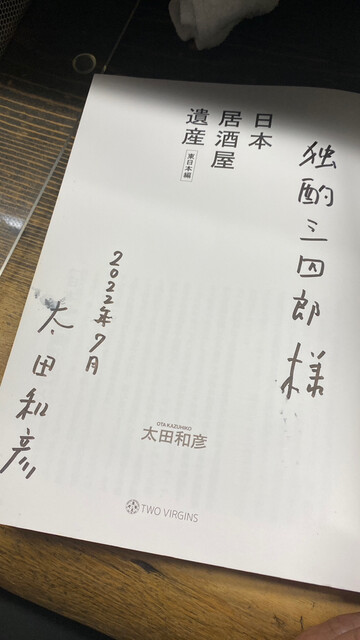 独酌三四郎様
日本
居酒屋
遺産
東日本編
2022年7月
太田和彦
OTA KAZUHIKO
太田和彦
TWO VIRGINS